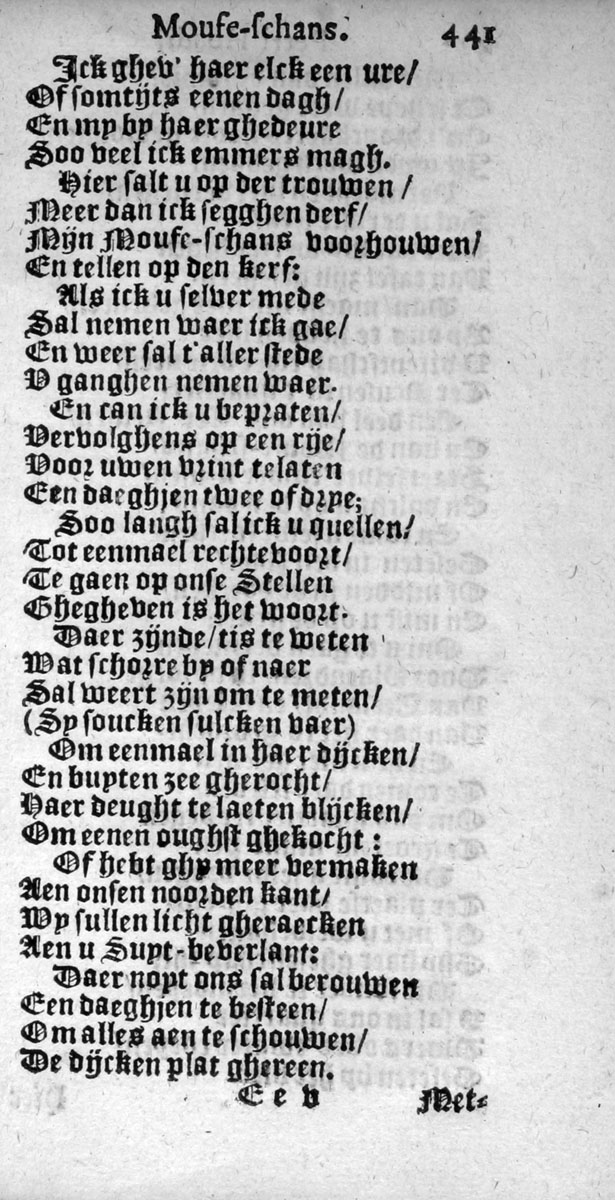 Mouse-schans. 441
Ick ghev' haer elck een ure/
Of somtijts eenen dagh/
En my by haer ghedeure
Soo veel ick emmers magh.
Hier salt u op der trouwen/
Meer dan ick segghen derf/
Mijn Mouse-schans voorhouwen/
En tellen op den kerf:
Als ick u selver mede
Sal nemen waer ick gae/
En weer sal t'aller stede
V ganghen nemen waer.
En can ick u bepraten/
Vervolghens op een rije/
Voor uwen vrint te laten
Een daeghjen twee of drye;
Soo langh sal ick u quellen/
Tot eenmael rechtevoort/
Te gaen op onse Stellen
Ghegheven is het woort.
Daer zijnde/tis te weten
Wat schorre by of naer
Sal weert zijn om te meten/
(Sy soucken sulcken vaer)
Om eenmael in haer dijcken/
En buyten zee gherocht/
Haer deught te laeten blijcken/
Om eenen oughst ghekocht:
Of hebt ghy meer vermaken
Aen onsen noorden kant/
Wy sullen licht gheraecken
Aen u Suyt-beverlant:
Daer noyt ons sal berouwen
Een daeghjen te besteen/
Om alles aen te schouwen/
De dijcken plat ghereen.
E e v Met-